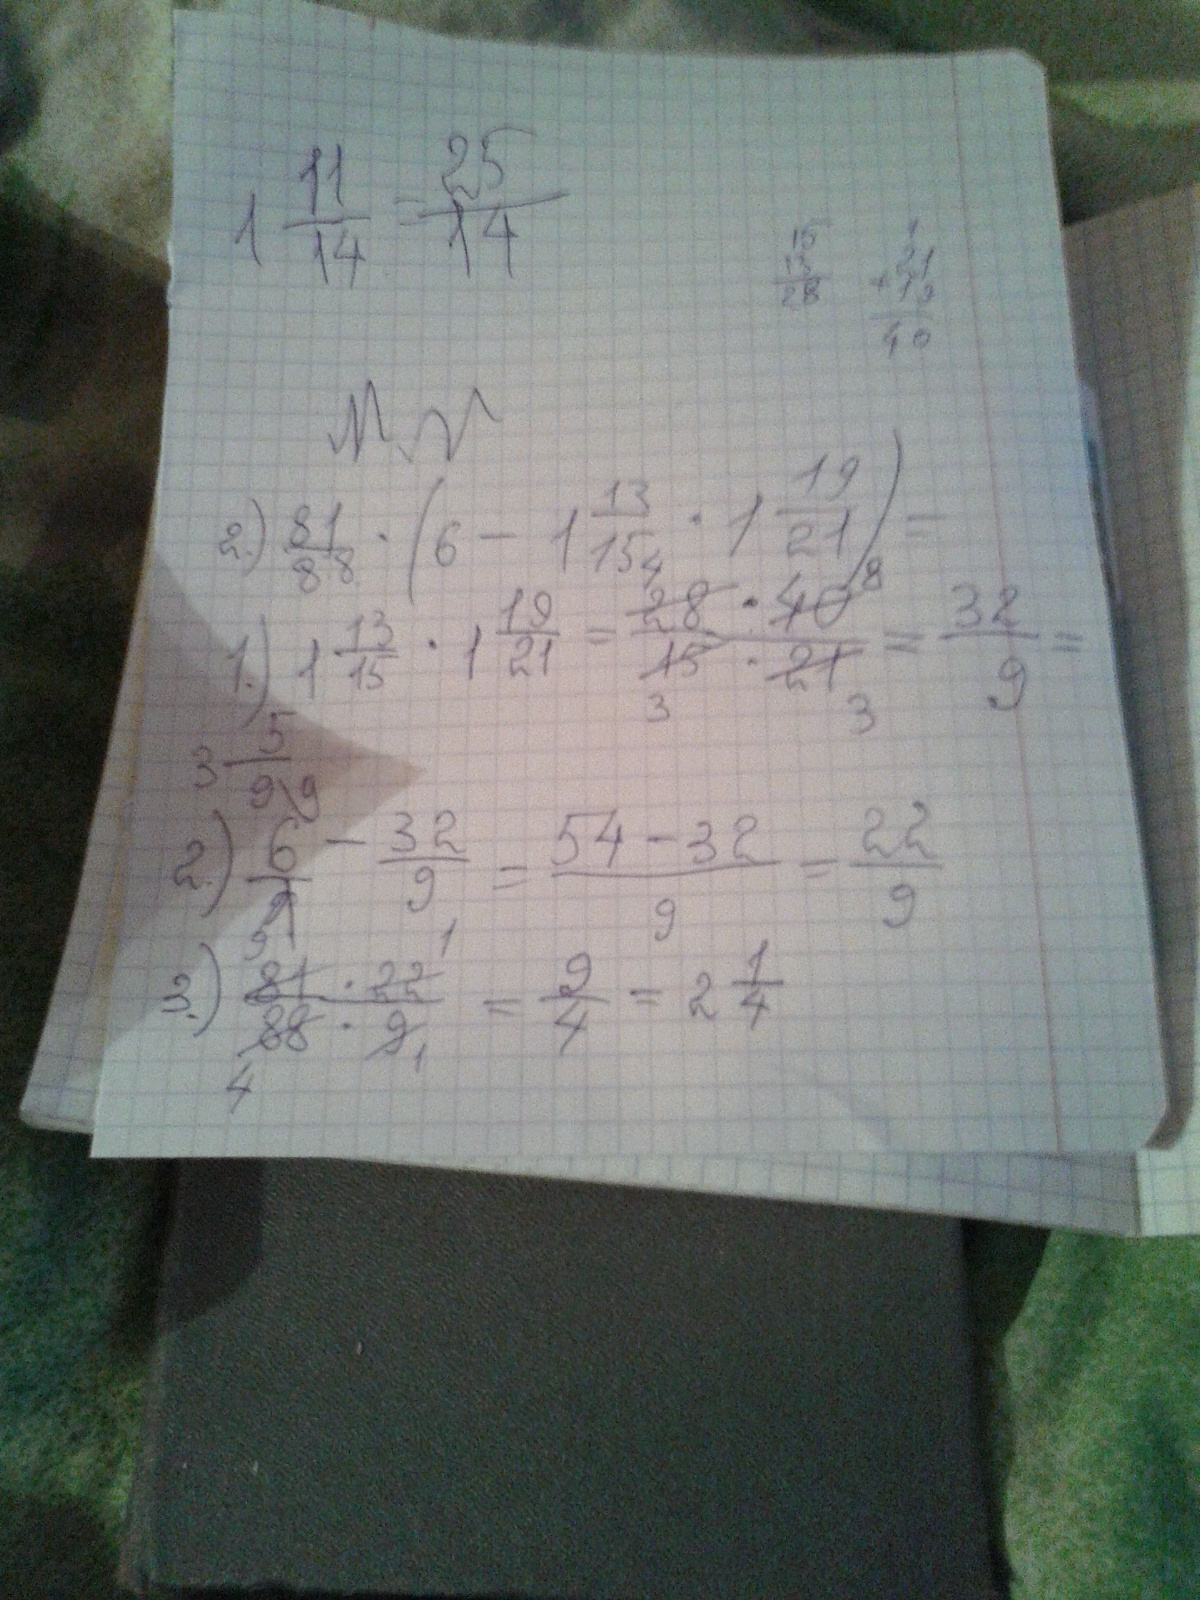 1 11/14 = 25/14
15
13
28
1
21
+19
40
2.) 81/88 · (6 − 1 13/15 · 1 19/21) =
1.) 1 13/15 · 1 19/21 = 28 · 40 / 15 · 21 = 32/9 =
4 8
3 3
3 5/9
9
2.) 6/1 − 32/9 = 54 − 32 / 9 = 22/9
9 1
3.) 81 · 22 / 88 · 9 = 9/4 = 2 1/4
4 1